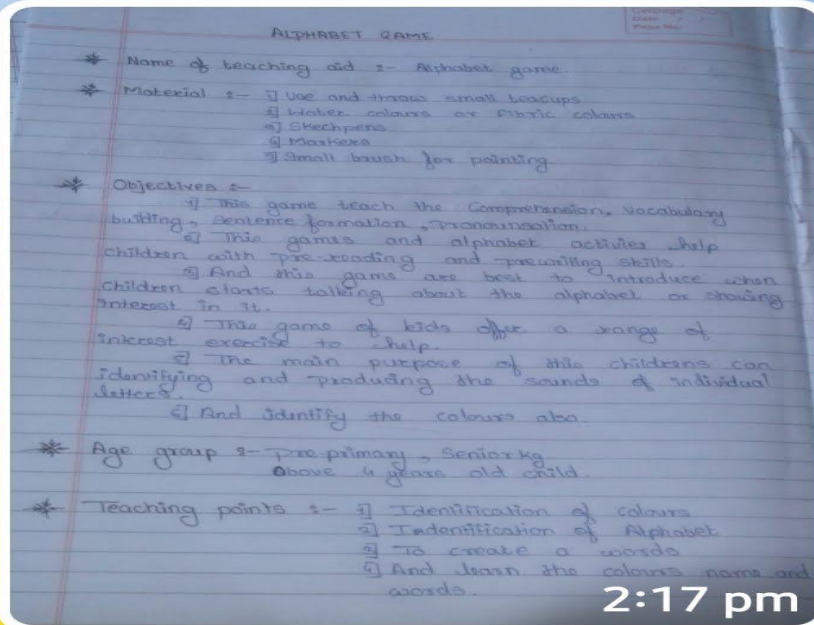 ALPHABET GAME
* Name of teaching aid :- Alphabet game.
* Material :- 1] Use and throw small teacups
2] Water colours or Fibric colours
3] Skechpens
4] Markers
5] Small brush for painting
* Objectives :-
1] This game teach the Comprehension, vocabulary
butting, sentence formation, pronounsation.
2] This games and alphabet activies help
children with pre-reading and prewriting skills.
3] And this game are best to introduce when
children starts talking about the alphabet or showing
interest in it.
4] This game of kids offer a range of
inkrest exercise to help.
5] The main purpose of this childrens can
identifying and producing the sounds of individual
letters.
6] And identify the colours also.
* Age group :- Pre primary, Senior kg
Above 4 years old child.
* Teaching points :- 1] Identification of colours
2] Indentification of Alphabet
3] To create a words
4] And learn the colours name and
words.
2:17 pm